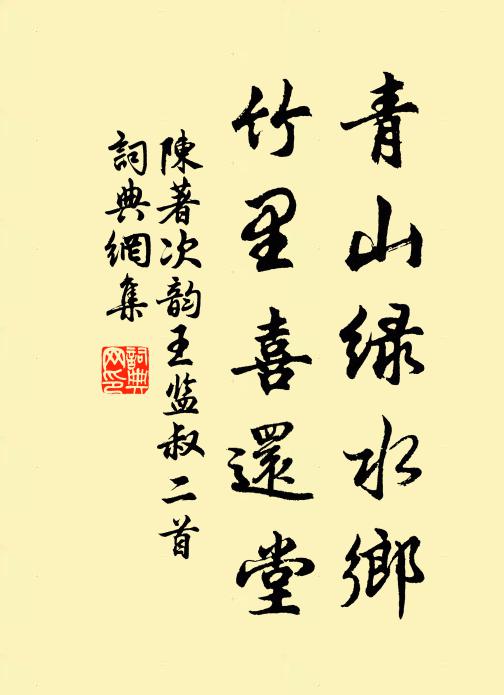 青山绿水鄉
竹里喜還堂
陳著次韵王监叔二首
詞典網集
詞典
网印